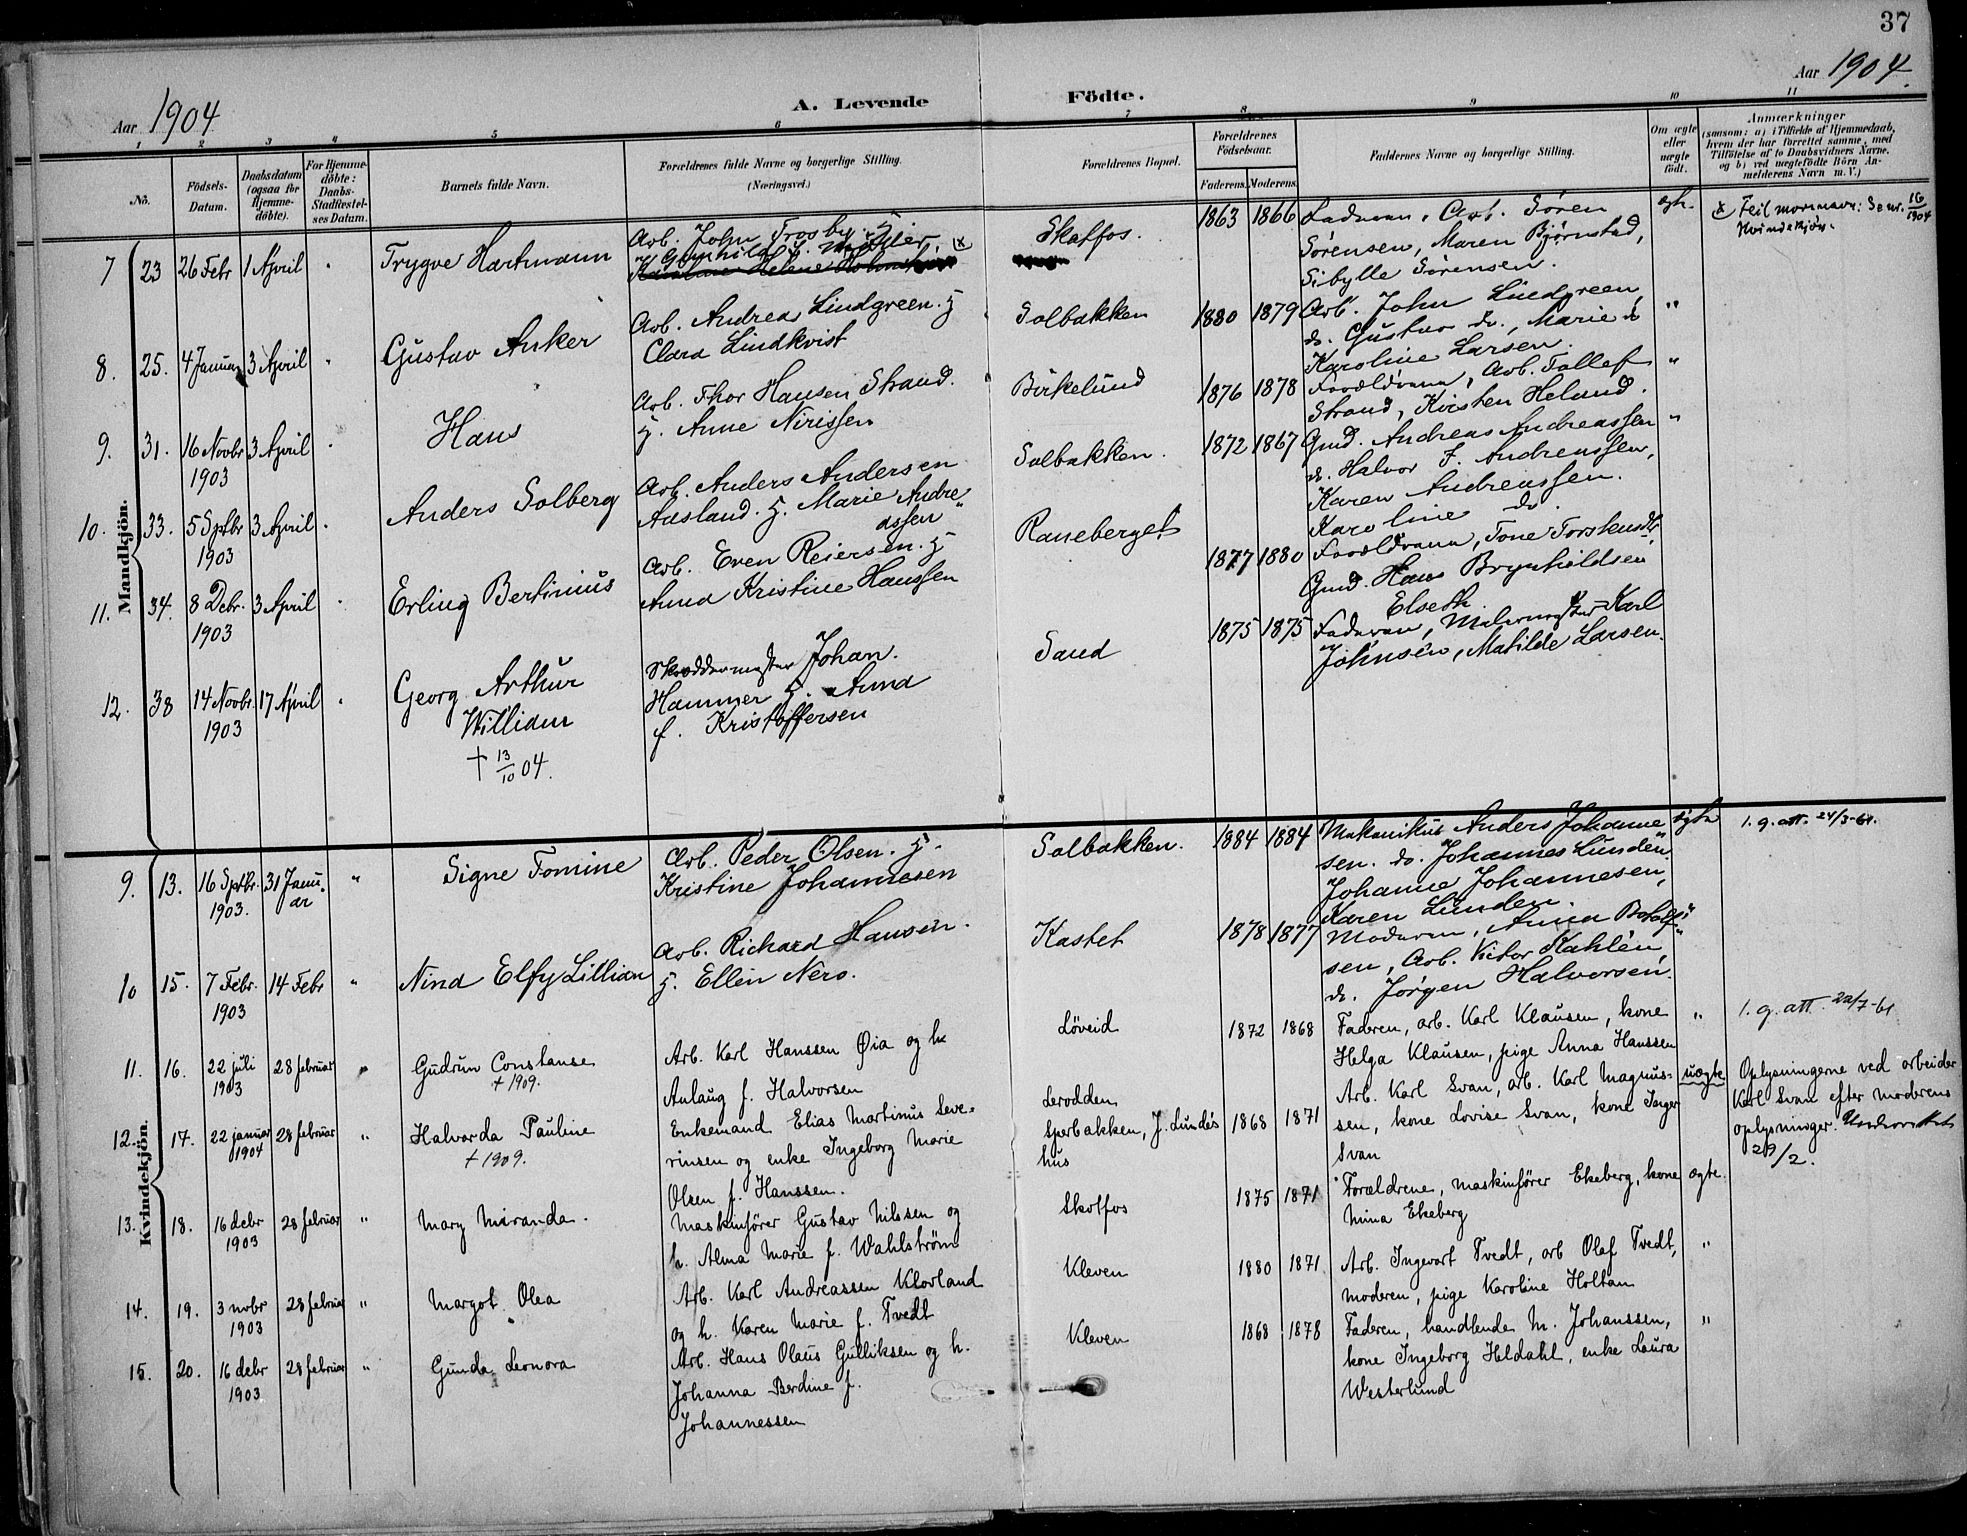 37
Aar 1904
A. Levende Födte.
Aar 1904.
1 2 3 4 5 6 7 8 9 10 11
No.
Födsels-Datum.
Daabsdatum (ogsaa for Hjemme-döbte).
For Hjemme-döbte: Daabs-Stadfæstel-ses Datum.
Barnets fulde Navn.
Forældrenes fulde Navne og borgerlige Stilling.
(Næringsvei.)
Forældrenes Bopæl.
Forældrenes Födselsaar.
Faderens. Moderens.
Faddernes Navne og borgerlige Stilling.
Om ægte eller uægte født.
Anmærkninger
(saasom: a) i Tilfælde af Hjemmedaab,
hvem der har forrettet samme, med
Tilföielse af to Daabsvidners Navne.
og b) ved uægtefödte Börn An-
melderens Navn m. V.)
Mandkjön.
7 23 26 Febr 1 April Trygve Hartmann
Arb. John Frosby. &
Gunhild J. Møller (x
Skotfos.
1863 1866
Faderen, Arb. Sören
Sörensen, Maren Bjørnstad,
Sibylle Sörensen.
ægte.
x) Feil morsnavn: Se nr. 16/1904
Kvindekjön.
8. 25. 4 Januar 3 April Gustav Anker
Arb. Andreas Lindgreen. &
Clara Lindkvist
Solbakken
1880 1879
Arb. John Lindgreen
do. Gustav do., Marie do
Karoline Larsen.
"
9. 31. 16 Novbr 1903 3 April Hans
Arb. Thor Hansen Strand.
&. Anne Nirissen
Birkelund
1876 1878
Forældrene, Arb. Tollef
Strand, Kirsten Heland.
"
10. 33. 5 Sptbr 1903 3 April Anders Solberg
Arb. Anders Andersen
Aasland. &. Marie Andre
assen
Solbakken.
1872 1867
Gmd. Andreas Andreassen
do. Halvor J. Andreassen,
Karen Andreassen.
Karoline do.
"
11. 34. 8 Debr. 1903 3 April Erling Bertinius
Arb. Even Reiersen. &
Anna Kristine Hanssen
Raneberget
1877 1880
Forældrene, Tone Torstensdtr,
Gmd. Hans Brynhildsen
Elseth.
12. 38 14 Novbr. 1903 17 April Georg Arthur
William
† 13/10 04.
Skræddermester Johan.
Hammer &. Anna
f. Kristoffersen
Sand
1875 1875
Faderen, Malermester Karl
Johnsen, Matilde Larsen.
Kvindekjön.
9. 13. 16 Sptbr. 1903. 31 Janu-ar " Signe Tomine
Arb. Peder Olsen. &.
Kristine Johannesen
Solbakken.
1884 1884
Mekanikus Anders Johanne
sen. do. Johannes Lunden.
Johanne Johannesen,
Karen Lunden.
ægte
1. g. att. 24/3-61.
10 15. 7 Febr. 1903 14 Febr " Nina Elfy Lillian
Arb. Richard Hansen.
&. Ellen Nero.
Kastet
1878 1877
Moderen, Anna Botolf-
sen, Arb. Victor Kahlén
do. Jørgen Halvorsen.
"
11. 16. 22 juli 1903 28 februar " Gudrun Constanse
† 1909.
Arb. Karl Hanssen Øia og h.
Aslaug f. Halvorsen
Löveid
1872 1868
Faderen, arb. Karl Klausen, kone
Helga Klausen, pige Anna Hanssen
"
1. g. att. 22/7-61
12. 17. 22 januar 1904 28 februar " Halvorda Pauline
† 1909.
Enkemand Elias Martinus Seve-
rinsen og enke Ingeborg Marie
Olsen f. Hanssen.
Lerodden
Sperbakken, J. Lunde's
hus
1868 1871
Arb. Karl Svan, arb. Karl Magnus-
sen, kone Lovise Svan, kone Inger
Svan
uægte
Oplysningerne ved arbeider
Karl Svan efter moderens
oplysninger. Underrettet
29/2.
13. 18. 16 debr 1903 28 februar " Mary Miranda.
Maskinfører Gustav Nilssen og
h. Alma Marie f. Wahlström
Skotfos
1875 1871
Forældrene, maskinfører Ekeberg, kone
Mina Ekeberg
ægte.
14. 19. 3 novbr 1903 28 februar " Margot Olea
Arb. Karl Andreassen Klovland
og h. Karen Marie f. Tvedt
Kleven
1880 1871
Arb. Ingevart Tvedt, arb Olaf Tvedt,
moderen, pige Karoline Holtan
"
15. 20. 16 debr 1903 28 februar " Gunda Leonora
Arb. Hans Olaus Gulliksen og h.
Johanna Berdine f.
Johannessen
Kleven
1868 1878
Faderen, handlende M. Johanssen,
kone Ingeborg Heldahl, enke Laura
Westerlund
"